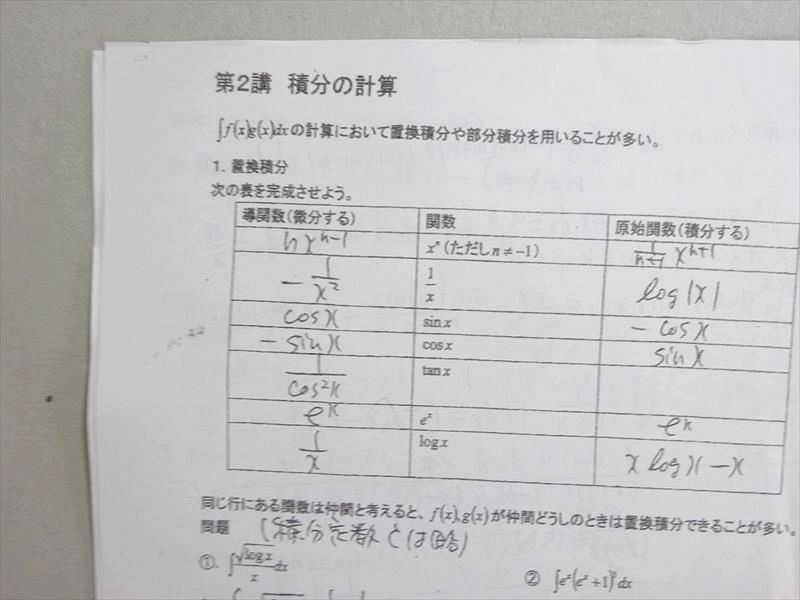 第2講 積分の計算
∫f(x)g(x)dxの計算において置換積分や部分積分を用いることが多い。
1. 置換積分
次の表を完成させよう。
導関数(微分する) 関数 原始関数(積分する)
nxⁿ⁻¹ xⁿ(ただしn≠-1) 1/(n+1) xⁿ⁺¹
-1/x² 1/x log|x|
cosx sinx -cosx
-sinx cosx sinx
1/cos²x tanx
eˣ eˣ eˣ
1/x logx xlogx-x
同じ行にある関数は仲間と考えると、f(x),g(x)が仲間どうしのときは置換積分できることが多い。
問題 (積分定数Cは略)
①. ∫√logx/x dx ② ∫eˣ(eˣ+1)